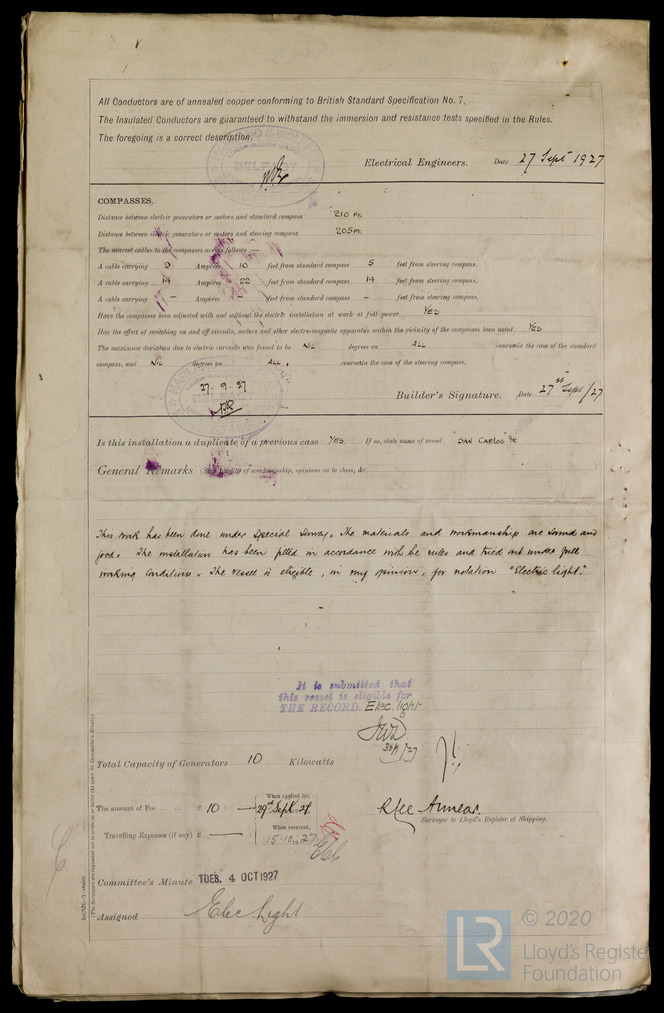 All Conductors are of annealed copper conforming to British Standard Specification No. 7.
The Insulated Conductors are guaranteed to withstand the immersion and resistance tests specified in the Rules.
The foregoing is a correct description.
BELFAST
Electrical Engineers. Date 27 Sept 1927
COMPASSES.
Distance between electric generators or motors and standard compass 210 FT.
Distance between electric generators or motors and steering compass 205 FT.
The nearest cables to the compasses are as follows:—
A cable carrying Ampères 10 feet from standard compass 5 feet from steering compass.
A cable carrying 14 Ampères 22 feet from standard compass 14 feet from steering compass.
A cable carrying — Ampères — feet from standard compass — feet from steering compass.
Have the compasses been adjusted with and without the electric installation at work at full power YES
Has the effect of switching on and off circuits, motors and other electro-magnetic apparatus within the vicinity of the compasses been noted YES
The maximum deviation due to electric currents was found to be NIL degrees on ALL course in the case of the standard
compass, and NIL degrees on ALL course in the case of the steering compass.
27.9.27
Builder's Signature. Date 27th Sept/27
Is this installation a duplicate of a previous case YES If so, state name of vessel "SAN CARLOS"
General Remarks (State quality of workmanship, opinions as to class, &c.
This work has been done under Special Survey. The materials and workmanship are sound and
good. The installation has been fitted in accordance with the rules and tried out under full
working conditions. The vessel is eligible, in my opinion, for notation "Electric light."
It is submitted that
this vessel is eligible for
THE RECORD. Elec. light
Total Capacity of Generators 10 Kilowatts
The amount of Fee ... ... £ 10 : — When applied for, 29th Sept. 27.
Surveyor to Lloyd's Register of Shipping.
Travelling Expenses (if any) £ — When received, 15.10.1927
Committee's Minute TUES. 4 OCT 1927
Assigned Elec Light
LR © 2020
Lloyd's Registe
Foundation